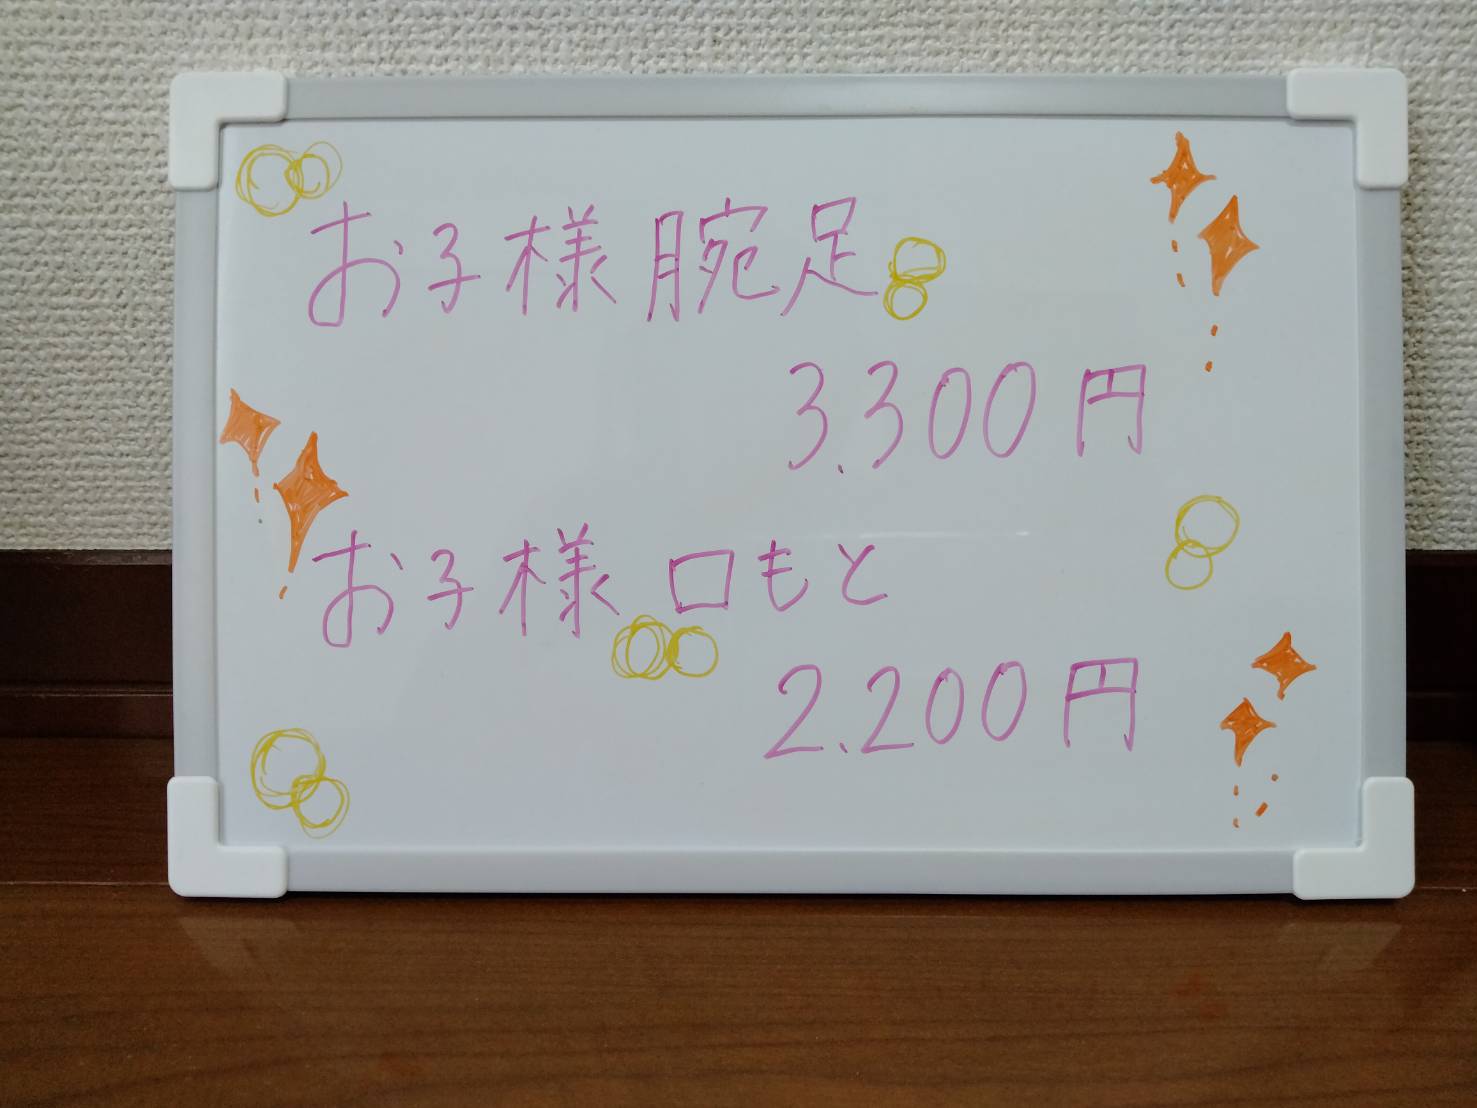 お子様腕足
3.300円
お子様口もと
2.200円